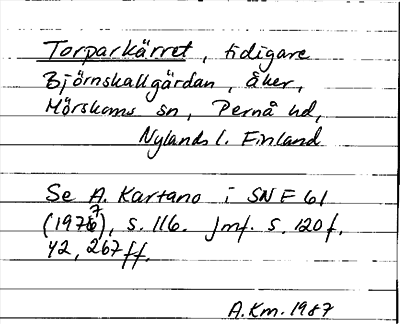 Torparkärret, tidigare
Björnskallgärdan, åker,
Mörskoms sn, Pernå hd,
Nylands l. Finland
Se A. Kartano i SNF 61
(1977), s. 116. Jmf. s. 120 f.
42, 267 ff.
A.Km. 1987